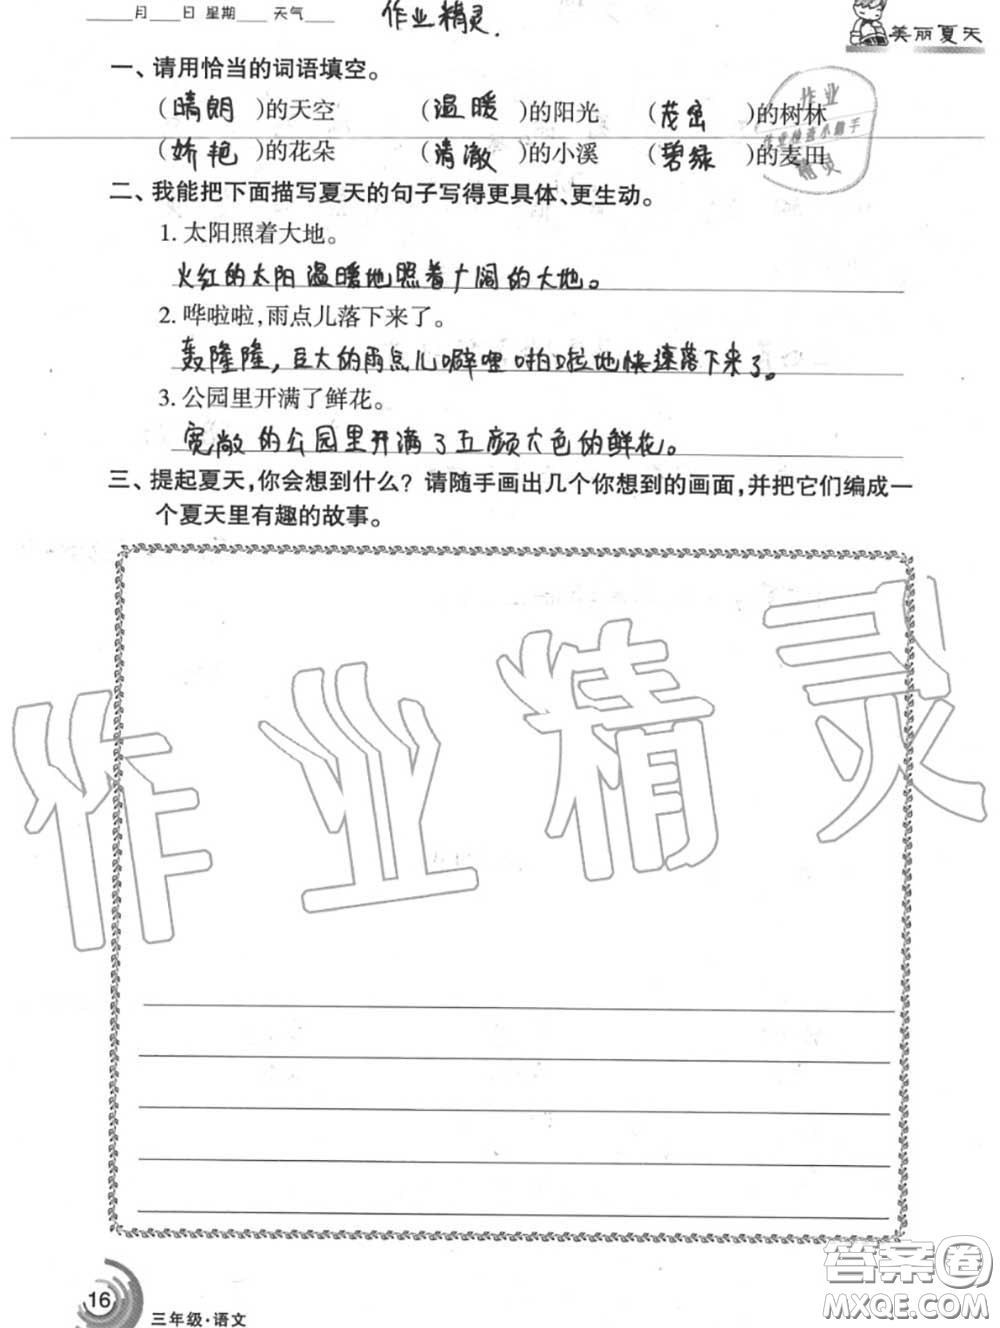 ____月____日 星期____ 天气____
作业精灵.
美丽夏天
一、请用恰当的词语填空。
(晴朗)的天空 (温暖)的阳光 (茂密)的树林
(娇艳)的花朵 (清澈)的小溪 (碧绿)的麦田
作业
作业检查小助手
精灵
二、我能把下面描写夏天的句子写得更具体、更生动。
1. 太阳照着大地。
火红的太阳温暖地照着广阔的大地。
2. 哗啦啦,雨点儿落下来了。
轰隆隆，巨大的雨点儿噼哩啪啦地快速落下来了。
3. 公园里开满了鲜花。
宽敞的公园里开满了五颜六色的鲜花。
三、提起夏天,你会想到什么？请随手画出几个你想到的画面,并把它们编成一
个夏天里有趣的故事。
作业精灵
16
三年级·语文
答案圈
MXQE.COM